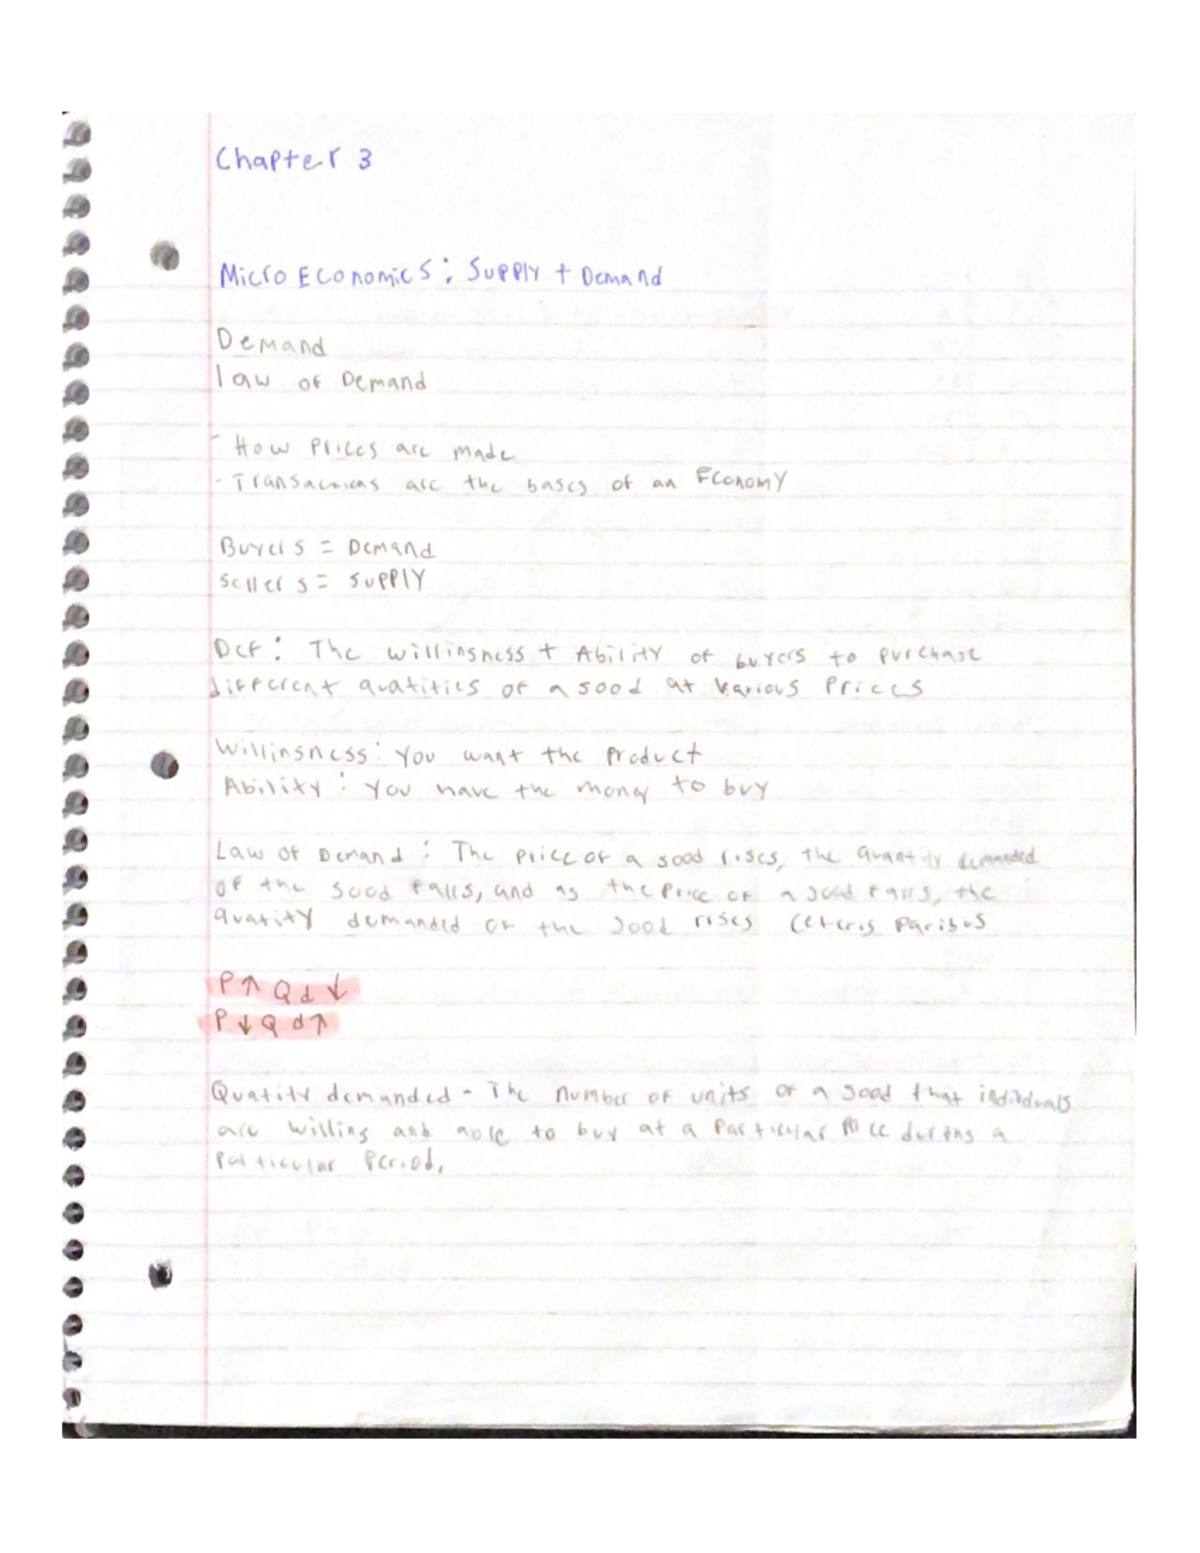 Chapter 3
Micro Economics: Supply + Demand
Demand
law of Demand
- How Prices are made
- Transactions are the bases of an Economy
Buyers = Demand
Sellers = Supply
Def: The willingness + Ability of buyers to purchase
different quatities of a good at various Prices
Willingness: You want the Product
Ability: You have the money to buy
Law of Demand: The price of a good rises, the quantity demanded
of the good falls, and as the price of a good falls, the
quatity demanded of the good rises Ceteris Paribus
P↑ Qd↓
P↓ Qd↑
Quatity demanded - The number of units of a good that individuals
are willing and able to buy at a Particular Price during a
Particular Period.